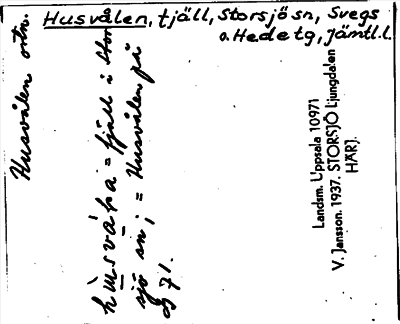 Husvålen, fjäll, Storsjö sn, Svegs
o. Hede tg, Jämtl. l.
Husvålen ortn.
= fjäll i Stor-
sjö sn; = Husvålen på
71.
Landsm. Uppsala 10971
V. Jansson. 1937. STORSJÖ Ljungdalen
HÄRJ.